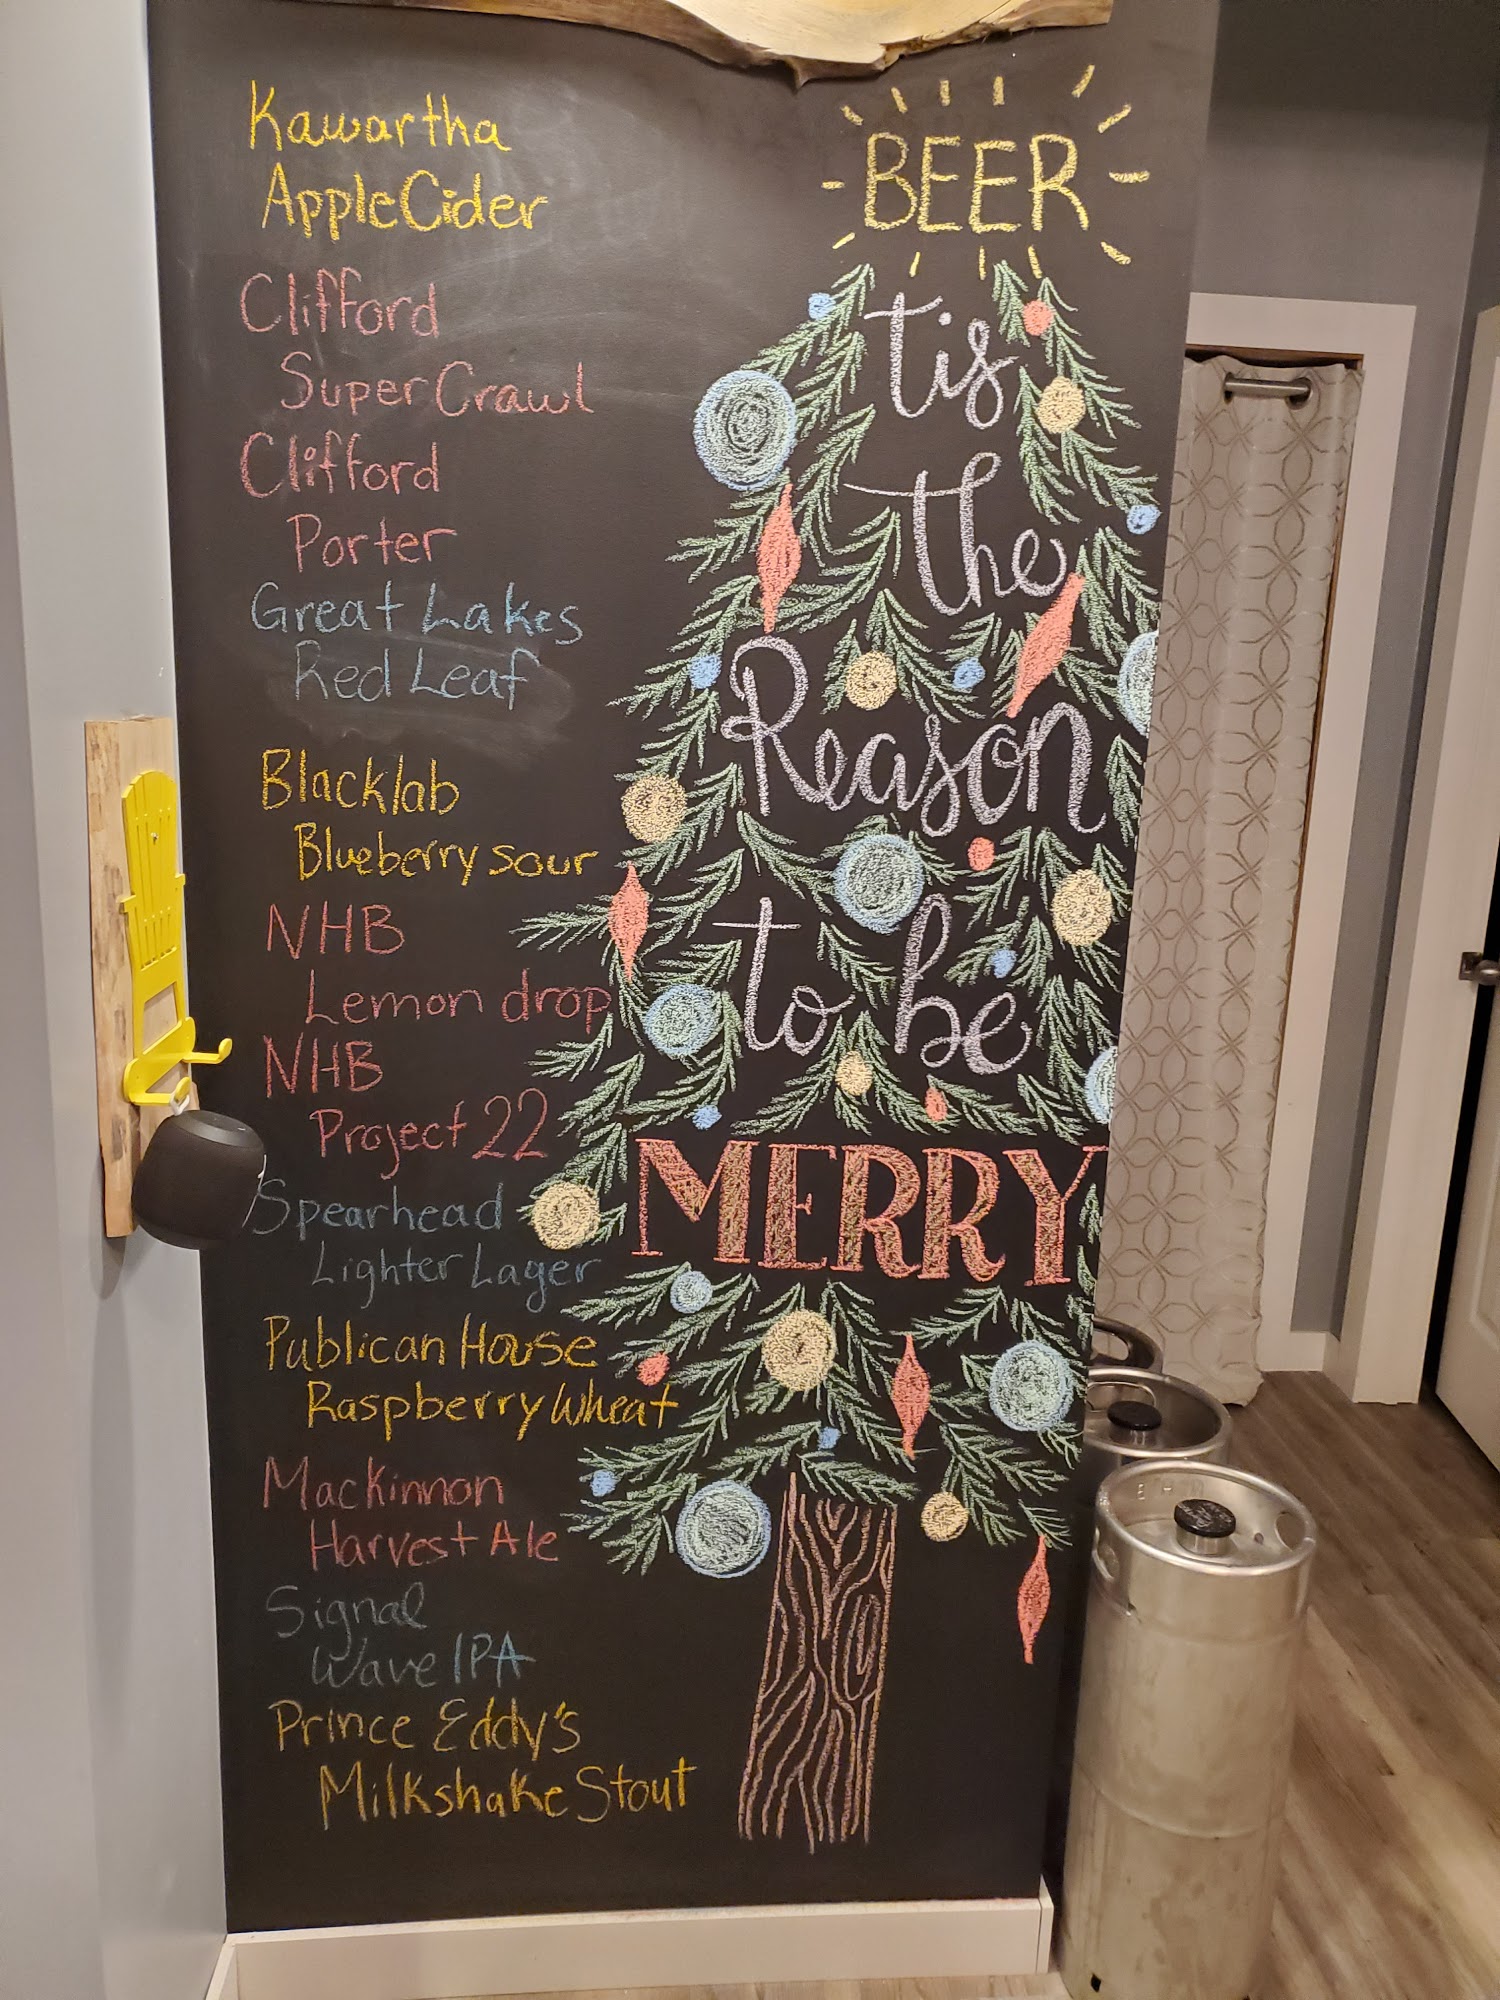 Kawartha
Apple Cider
Clifford
Super Crawl
Clifford
Porter
Great Lakes
Red Leaf
Blacklab
Blueberry sour
NHB
Lemon drop
NHB
Project 22
Spearhead
Lighter Lager
Publican House
Raspberry Wheat
Mackinnon
Harvest Ale
Signal
Wave IPA
Prince Eddy's
Milkshake Stout
BEER
tis
the
Reason
to be
MERRY